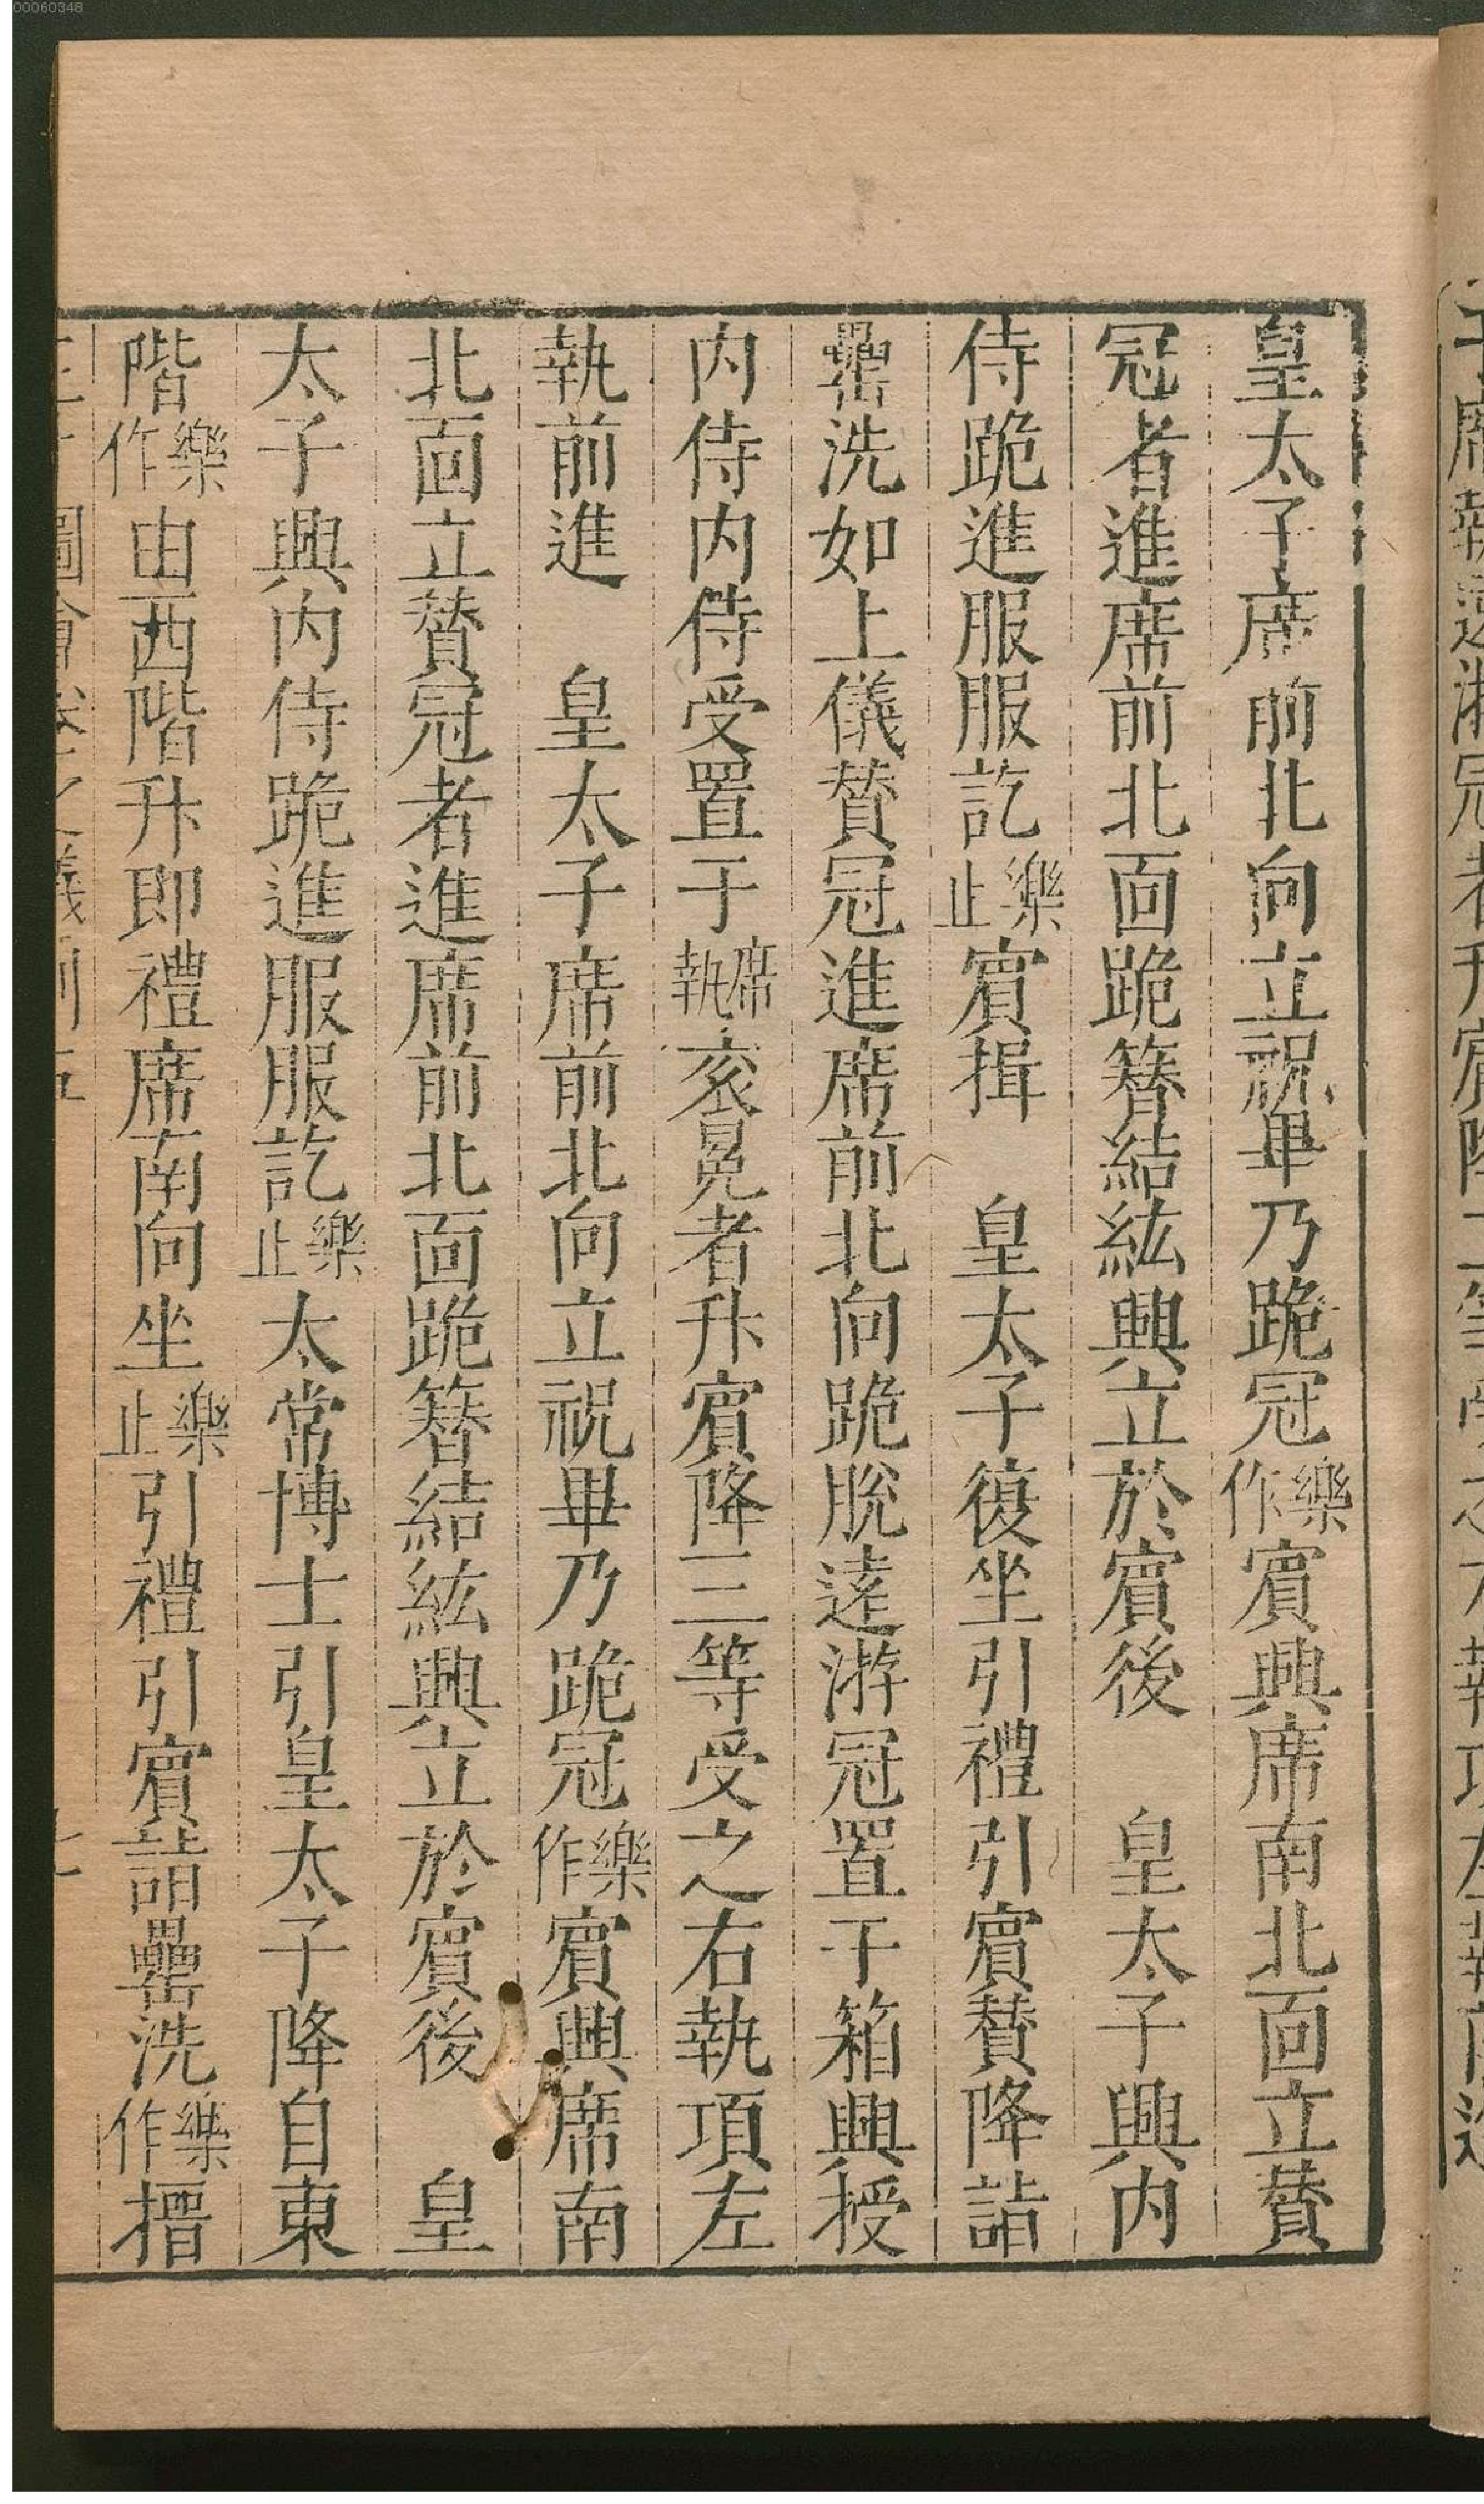 00060348
皇太子席前北向立祝畢乃跪冠樂作賔興席南北面立賛
冠者進席前北面跪簪結紘興立於賔後 皇太子興内
侍跪進服服訖樂止賔揖 皇太子復坐引禮引賔賛降詣
罍洗如上儀賛冠進席前北向跪脫逺游冠置于箱興授
内侍内侍受置于席執衮冕者升賔降三等受之右執項左
執前進 皇太子席前北向立祝畢乃跪冠樂作賔興席南
北面立賛冠者進席前北面跪簪結紘興立於賔後 皇
太子興内侍跪進服服訖樂止太常博士引皇太子降自東
階樂作由西階升即禮席南向坐樂止引禮引賔詣罍洗樂作搢